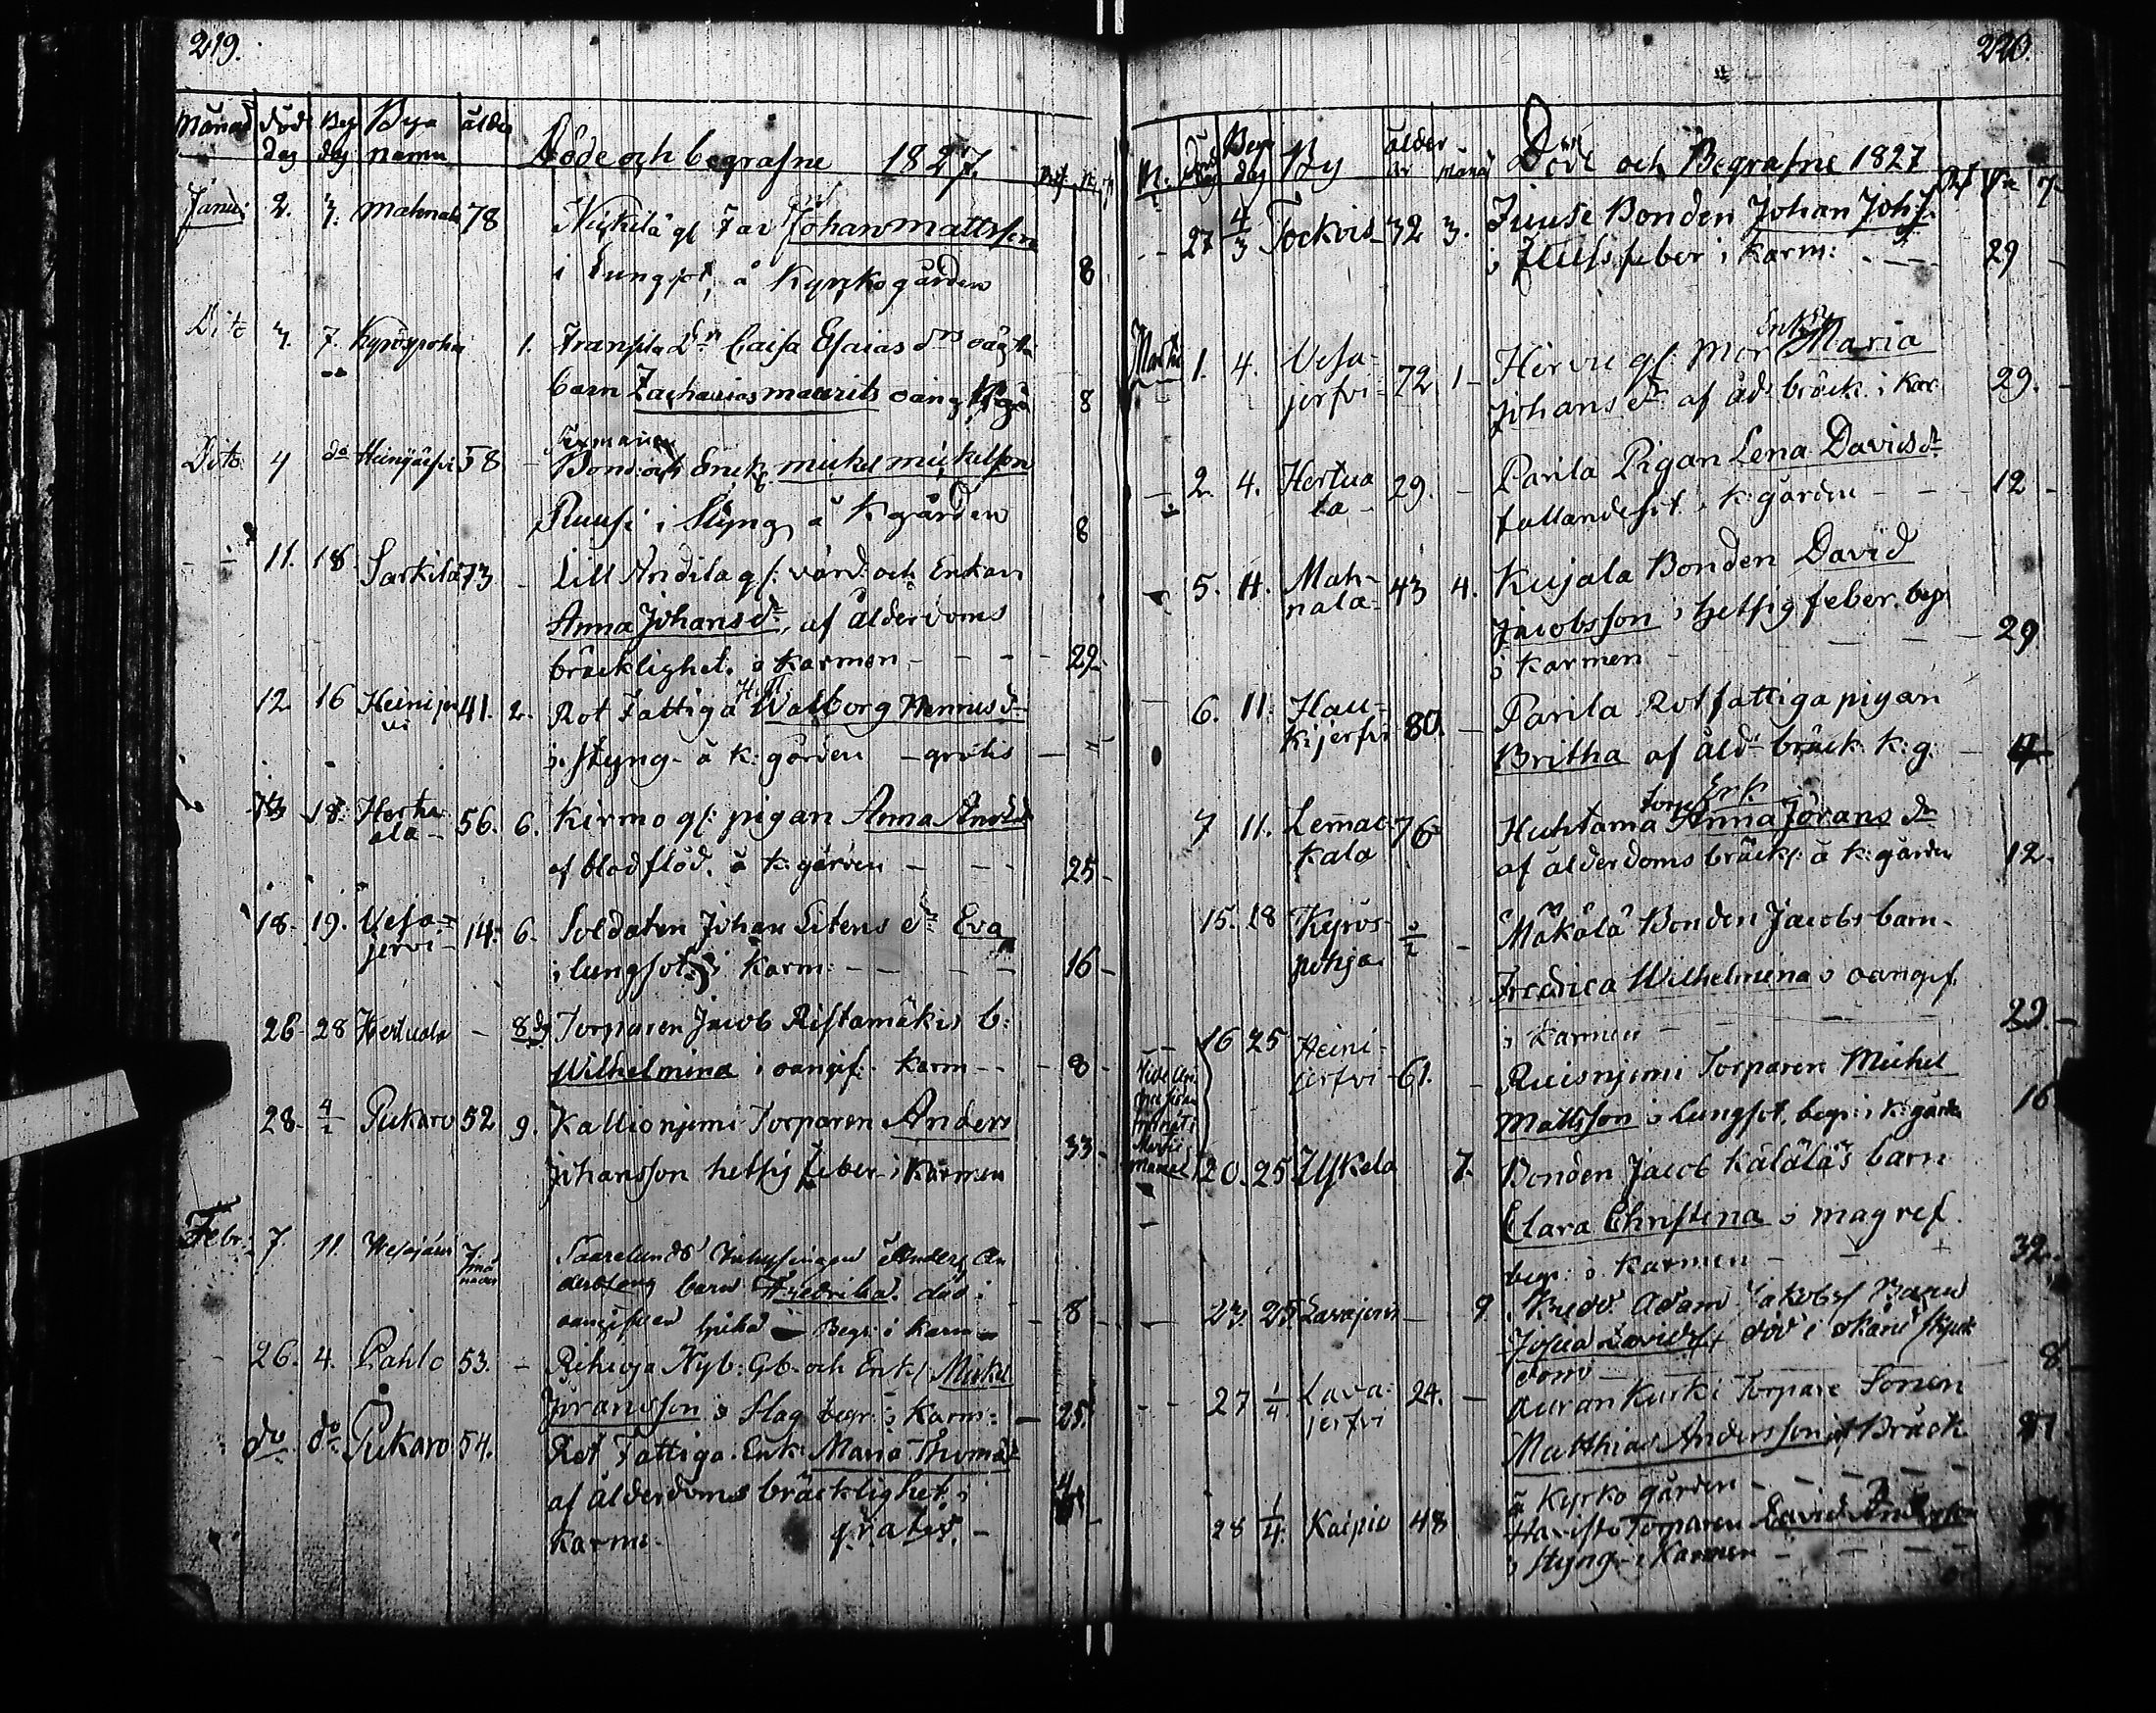 219.
Månad död dag Beg dag Bya namn ålder Döde och begrafne 1827.
Janu: 2. 3. Mahnala 78 Nickilä gl Far Johan Mattsson
i Lungsot, å Kyrkogården 8
Dito 3. 7. Kyröspohja 1. Fransila Caisa Esaias drs oägta
barn Zacharias Maurits oang 8
Dito 4 do Heinijärfvi 58 - Bond: och Enck: Michel Michelson
Ruusi i Styng å K gården 8
11. 18 Sarkila 73 - Lill Andila gl: värd: och Enkan
Anna Johansdr, af ålderdoms
bräcklighet. i karmen - - - 29
12 16 Heinijer vi 41. 2. Rot Fattiga Walborg Henricsdr
i. styng - å k: gården - gratis -
18. Hertu ala - 56. 6. Kirmo gl: pigan Anna
af blodflöd. å k: gården - - 25 -
18. 19. Vesa- jervi - 14. 6. Soldaten Johan Litens dr Eva
i lungsot i Karm: - - - 16 -
26 28 Hertuala - 8 dg Torparen Jacob Ristamäkis b:
Wilhelmina i oangif: Karm - - 8 -
28. 4/2 Pukaro 52 9. Kallionjemi Torparen Anders
Johansson hettsig feber i Karmen 33 -
Febr. 7. 11. Vesajärvi 7 må nader Saarelunds Inhysingen Anders An
dersons barn Fredrika. död i
oangifven sjukd - Begr: i Karm - 8 -
26. 4. Pahlo 53. - Rihioja Nyb: Gb. och Enk: Mickel
Joransson i Slag begr: i Karm: - 25
do do Pukaro 54. Rot Fattiga Enk: Maria Thomasdr
af ålderdoms bräcklighet i
Karm: gratis. -
220.
M. död dag Begr dag By ålder år månad Döde och Begrafne 1827
27 4/3 Tockvis 32 3. Juuse Bonden Johan Johs
i feber i Karm: - - 29 -
Martii 1. 4. Vesa- jerfvi 72 1 - Hirvu gl: Mor Enkan Maria
Johans dr af åld: bräck: i Kar: 29. -
2. 4. Hertua la - 29. - Parila Pigan Lena Davidsdr
fallandesot i k: gården - - 12 -
5. 11. Mah- nala - 43 4. Kujala Bonden David
Jacobsson i hettsig feber. begr
i Karmen - - - 29
6. 11. Hau- kijerfvi 80. - Parila Rotfattiga pigan
Britha af åld: bräck: k: g: -
7 11. Lemac- kala 76 Huhtama Torp Enk Anna Jörans dr
af ålderdoms bräckl: å k: gården 12.
15. 18 Kyrös- pohja - Mäkälä Bonden Jacobs barn
Fredrica Wilhelmina i oangif.
i Karmen - - - 29. -
16 25 Heini- jerfvi - 61. - Ruisnjemi Torparen Michel
Mattsson i Lungsot. begr: i k: gården 16
20. 25 Ylskela 7. Bonden Jacob Kälälä's barn
Clara Christina i mag ref.
begr: i Karmen - - 32.
23. 25 Lavajervi - 9. Adam Jakobs Barn
Josua Davids död i
dom - 8.
27 1/4 Lava: jerfvi 24. - Auran Kurki Torpare Sonen
Matthias Andersson af Bräck
å kyrko gården - - - -
28 1/4 Kaipio 48 Havisto Torparen David Andersson
i styng - i Karmen - - - -